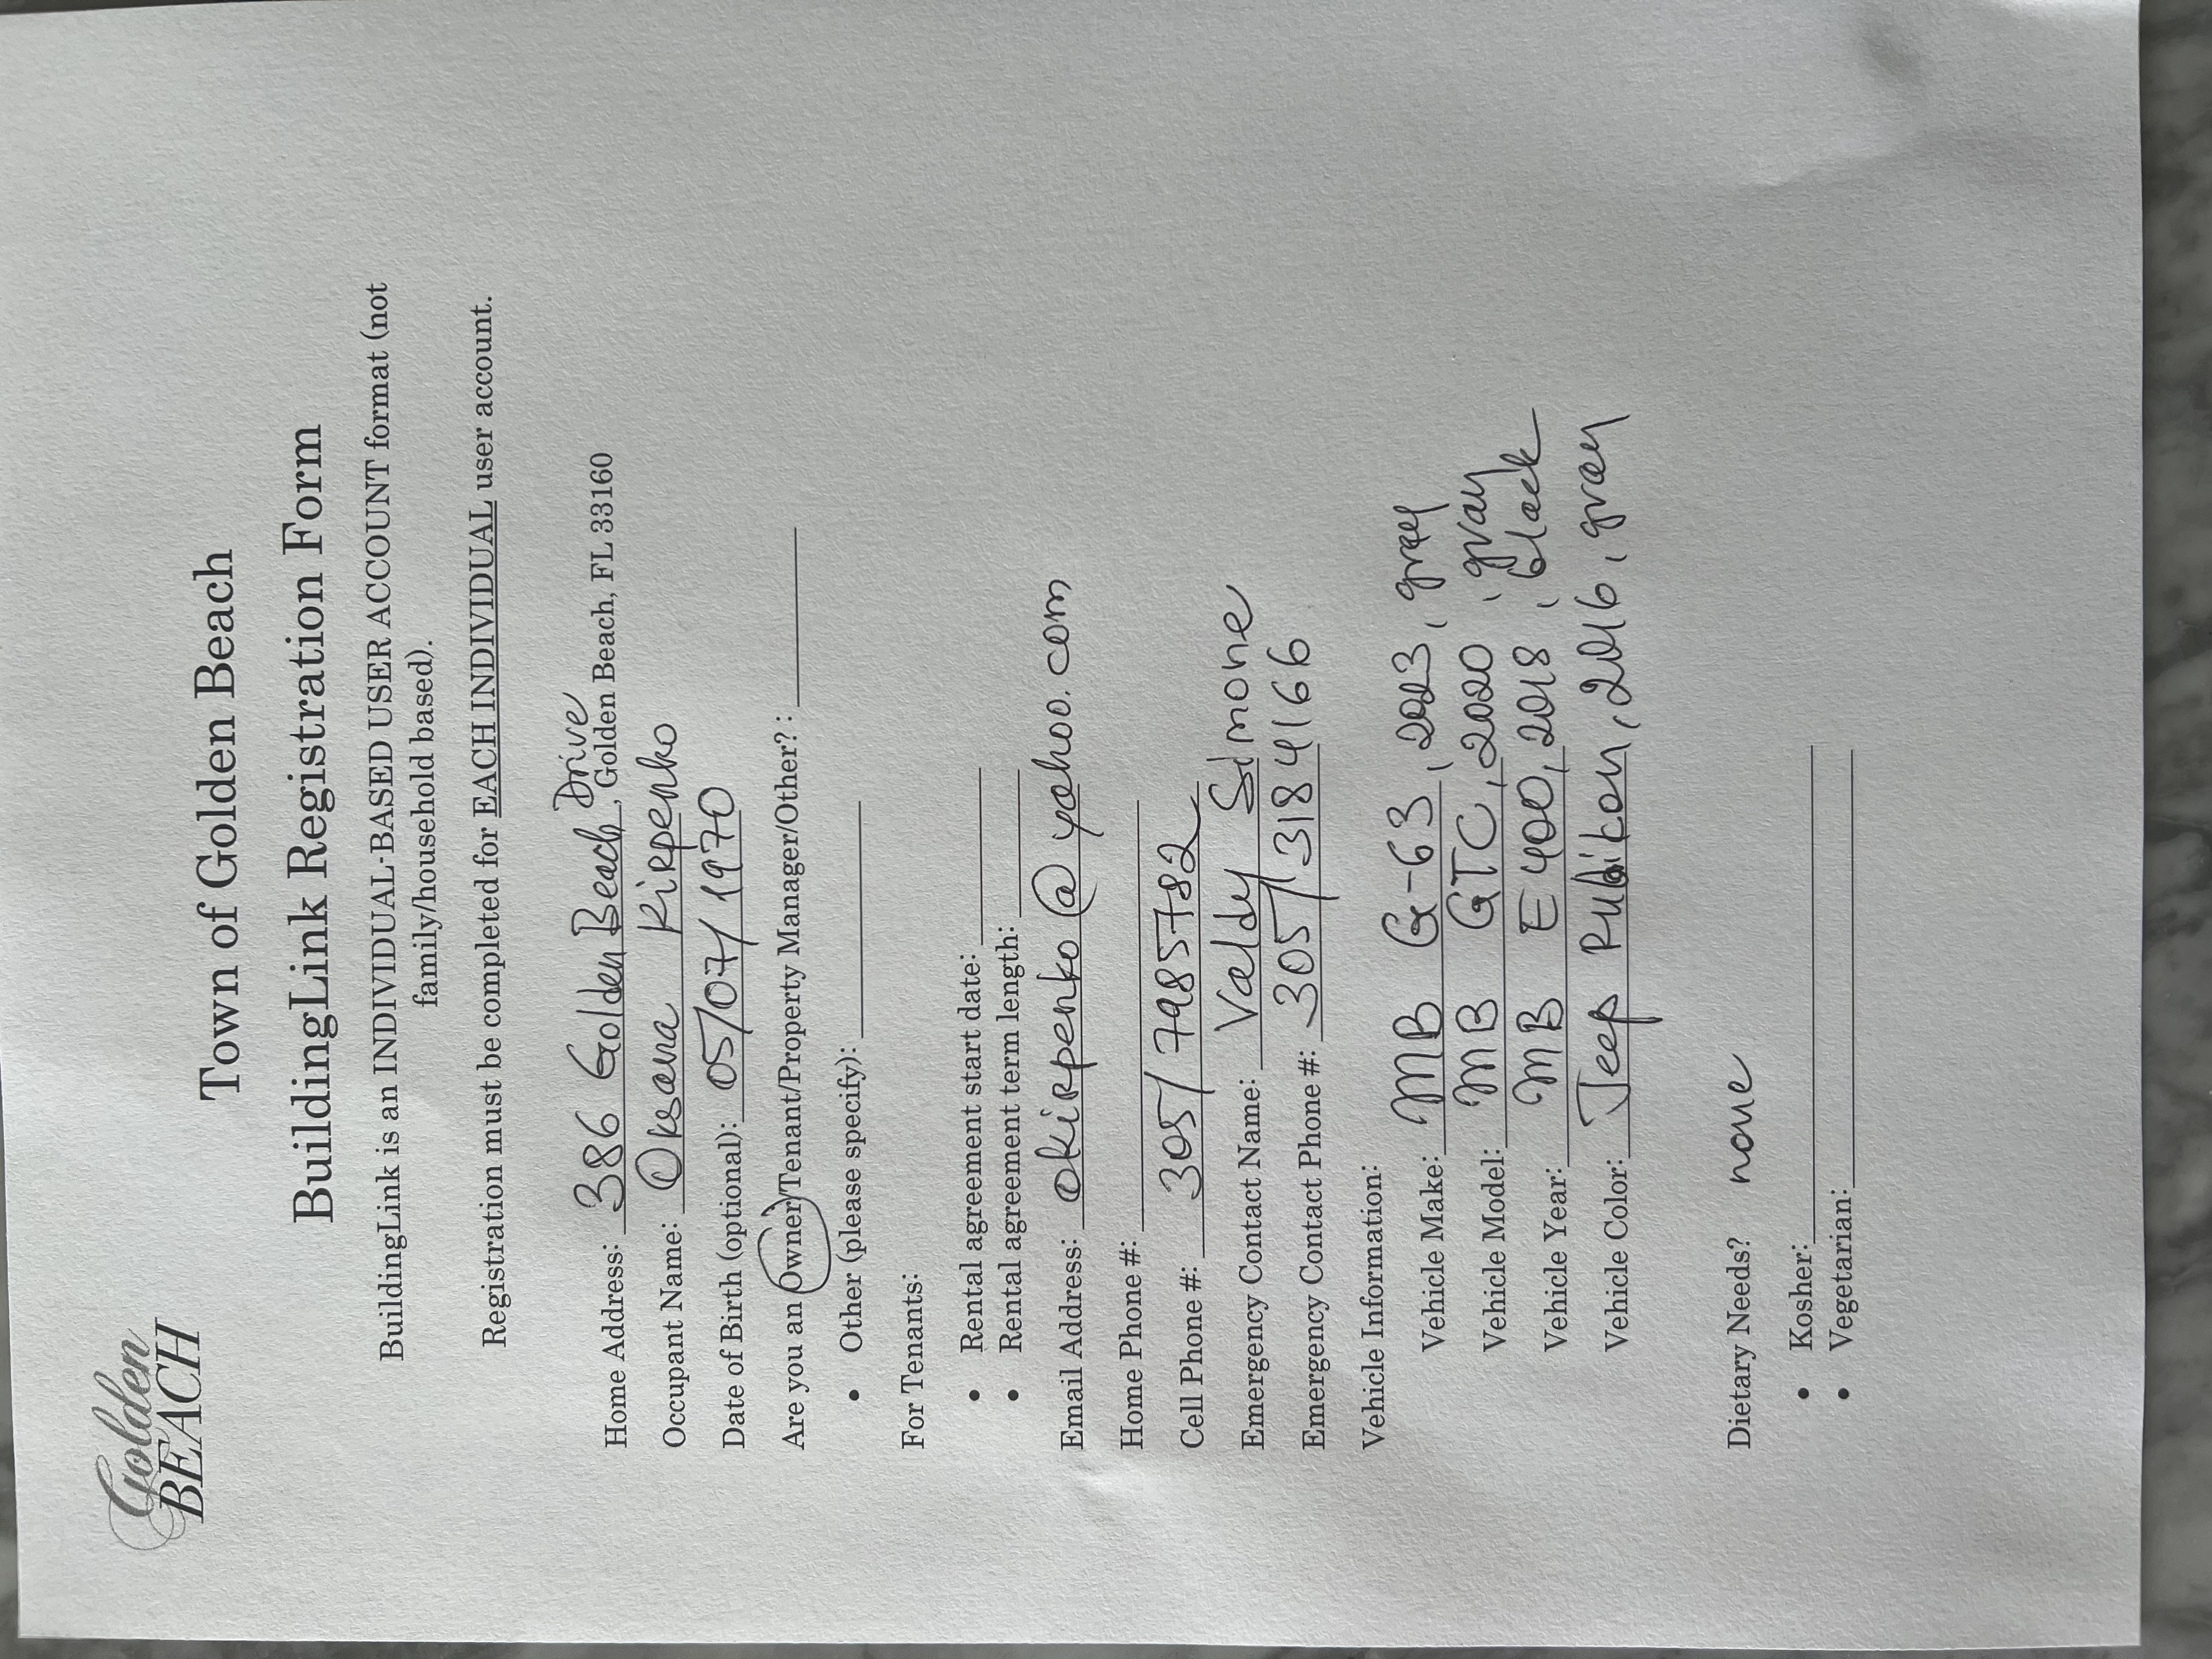 Golden
BEACH
Town of Golden Beach
BuildingLink Registration Form
BuildingLink is an INDIVIDUAL-BASED USER ACCOUNT format (not
family/household based).
Registration must be completed for EACH INDIVIDUAL user account.
Home Address: 386 Golden Beach Drive, Golden Beach, FL 33160
Occupant Name: Oksana Kirpenko
Date of Birth (optional): 05/07/1970
Are you an Owner/Tenant/Property Manager/Other?:
• Other (please specify):
For Tenants:
• Rental agreement start date:
• Rental agreement term length:
Email Address: okirpenko@yahoo.com
Home Phone #:
Cell Phone #: 305/7985782
Emergency Contact Name: Valdy Simone
Emergency Contact Phone #: 305/3184166
Vehicle Information:
Vehicle Make: MB G-63, 2023, gray
Vehicle Model: MB GTC, 2020, gray
Vehicle Year: MB E400, 2018, black
Vehicle Color: Jeep Rubikon, 2016, gray
Dietary Needs? none
• Kosher:
• Vegetarian: